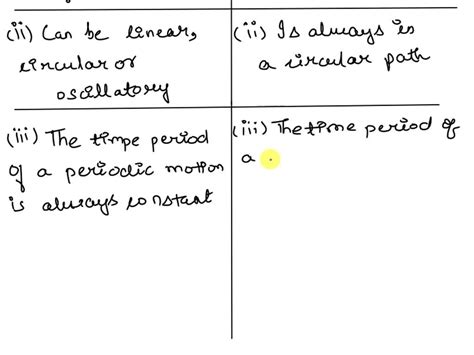 (ii) Can be linear,
circular or
oscillatory
(ii) Is always in
a circular path
(iii) The timpe period
of a periodic motion
is always constant
(iii) The time period of
a